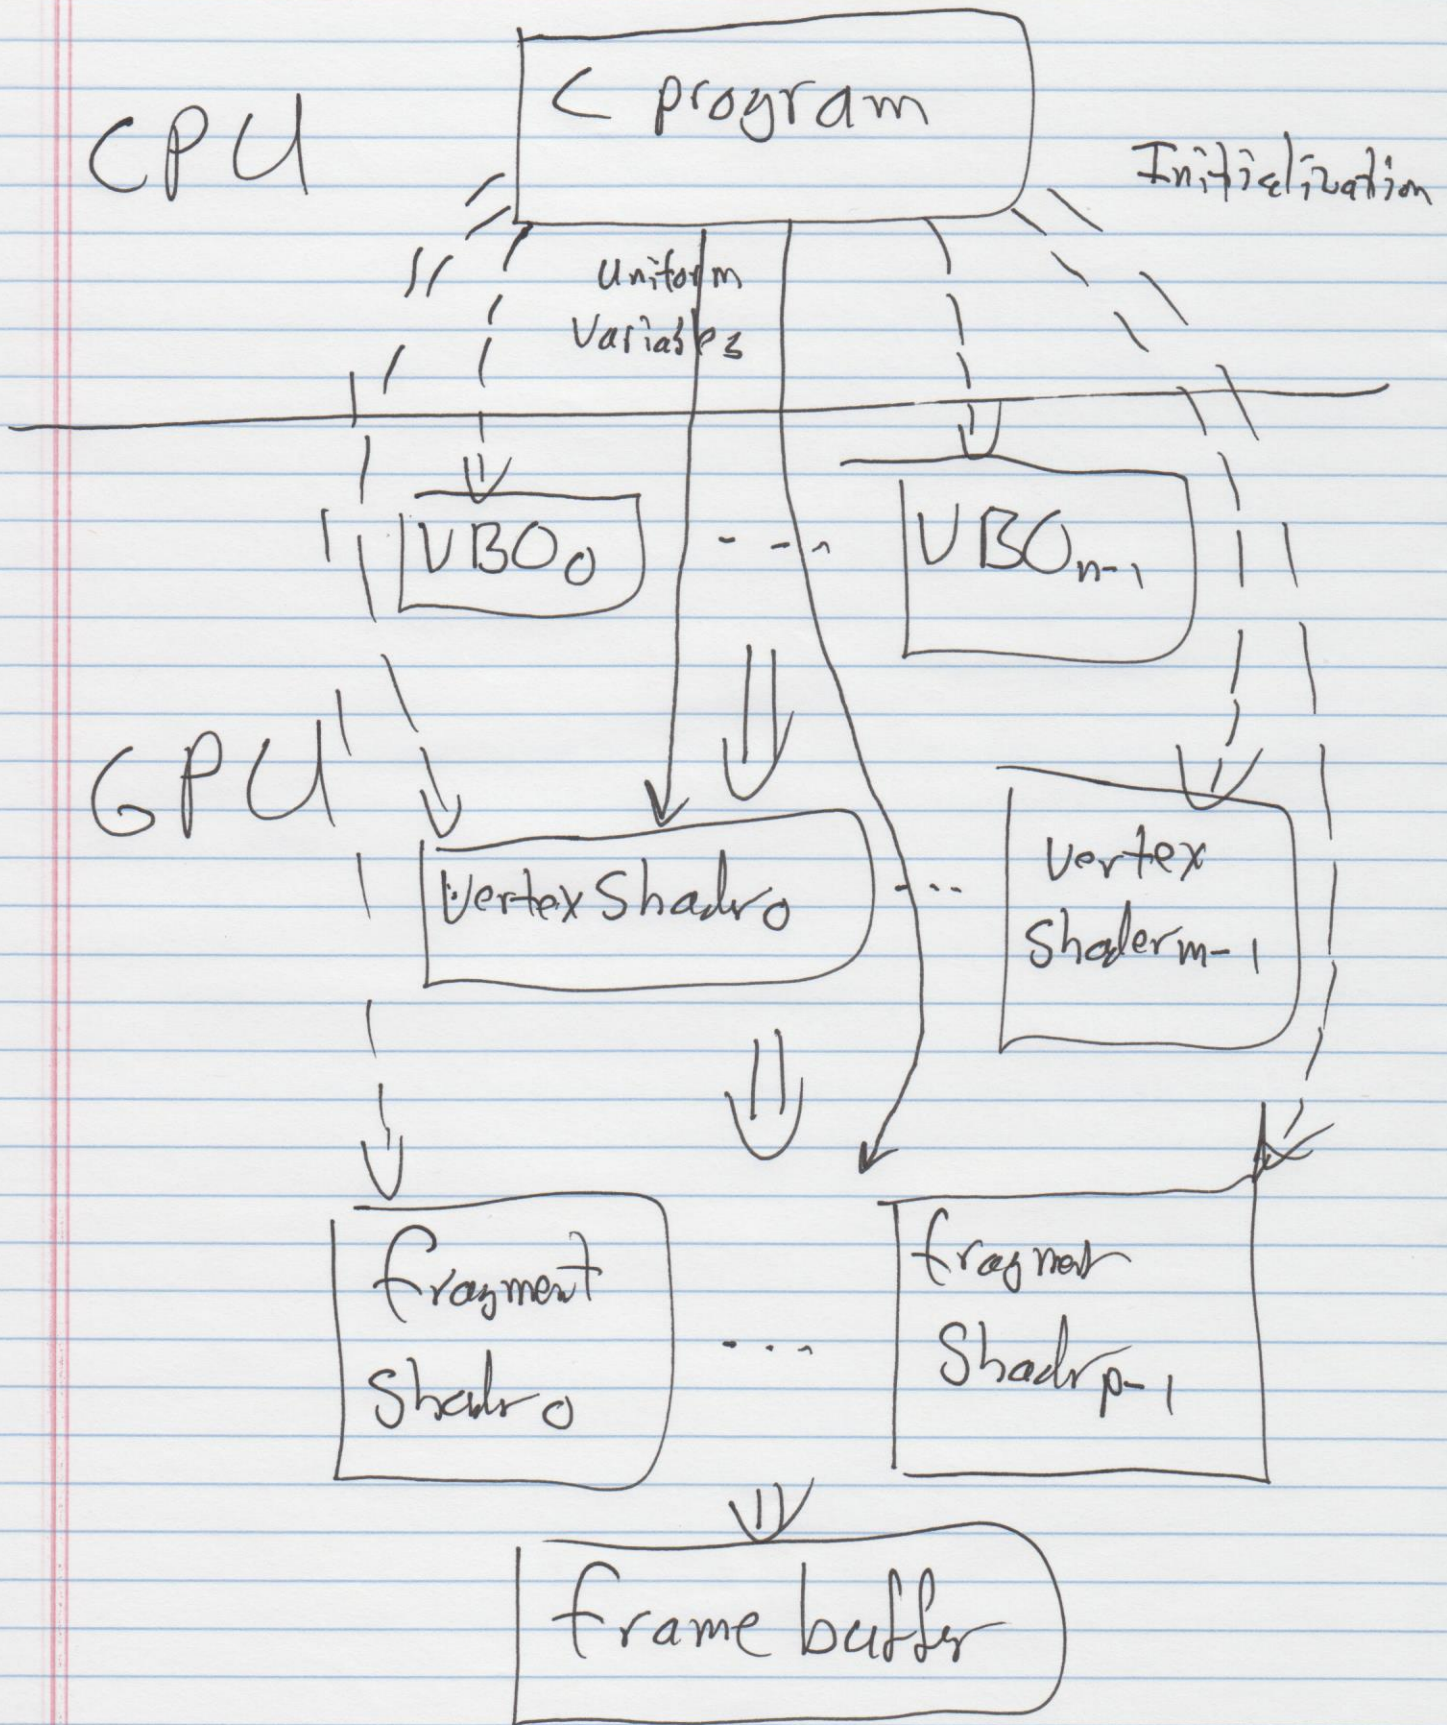 C program
CPU
Initialization
Uniform
Variables
VBO0
....
VBOn-1
GPU
Vertex Shadr0
...
Vertex
Shaderm-1
fragment
Shadr0
...
fragment
Shadrp-1
frame buffer